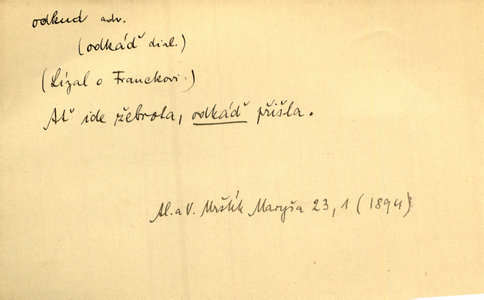 odkud adv.
(odkáď dial.)
(Lízal o Franckovi.)
Ať ide žebrota, odkáď přišla.
Al. a V. Mrštík Maryša 23, 1 (1894)